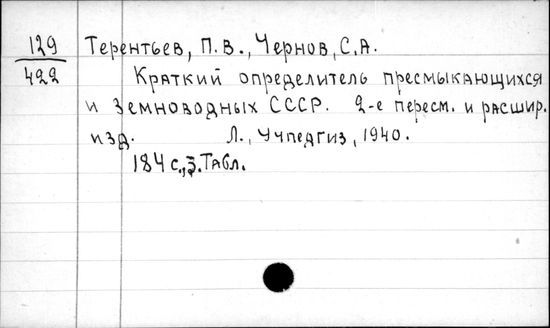 129
422
Терентьев, П.В., Чернов, С.А.
Краткий определитель пресмыкающихся
и земноводных СССР. 2-е пересм. и расшир.
изд. Л., Учпедгиз, 1940.
184 с., 3. Табл.